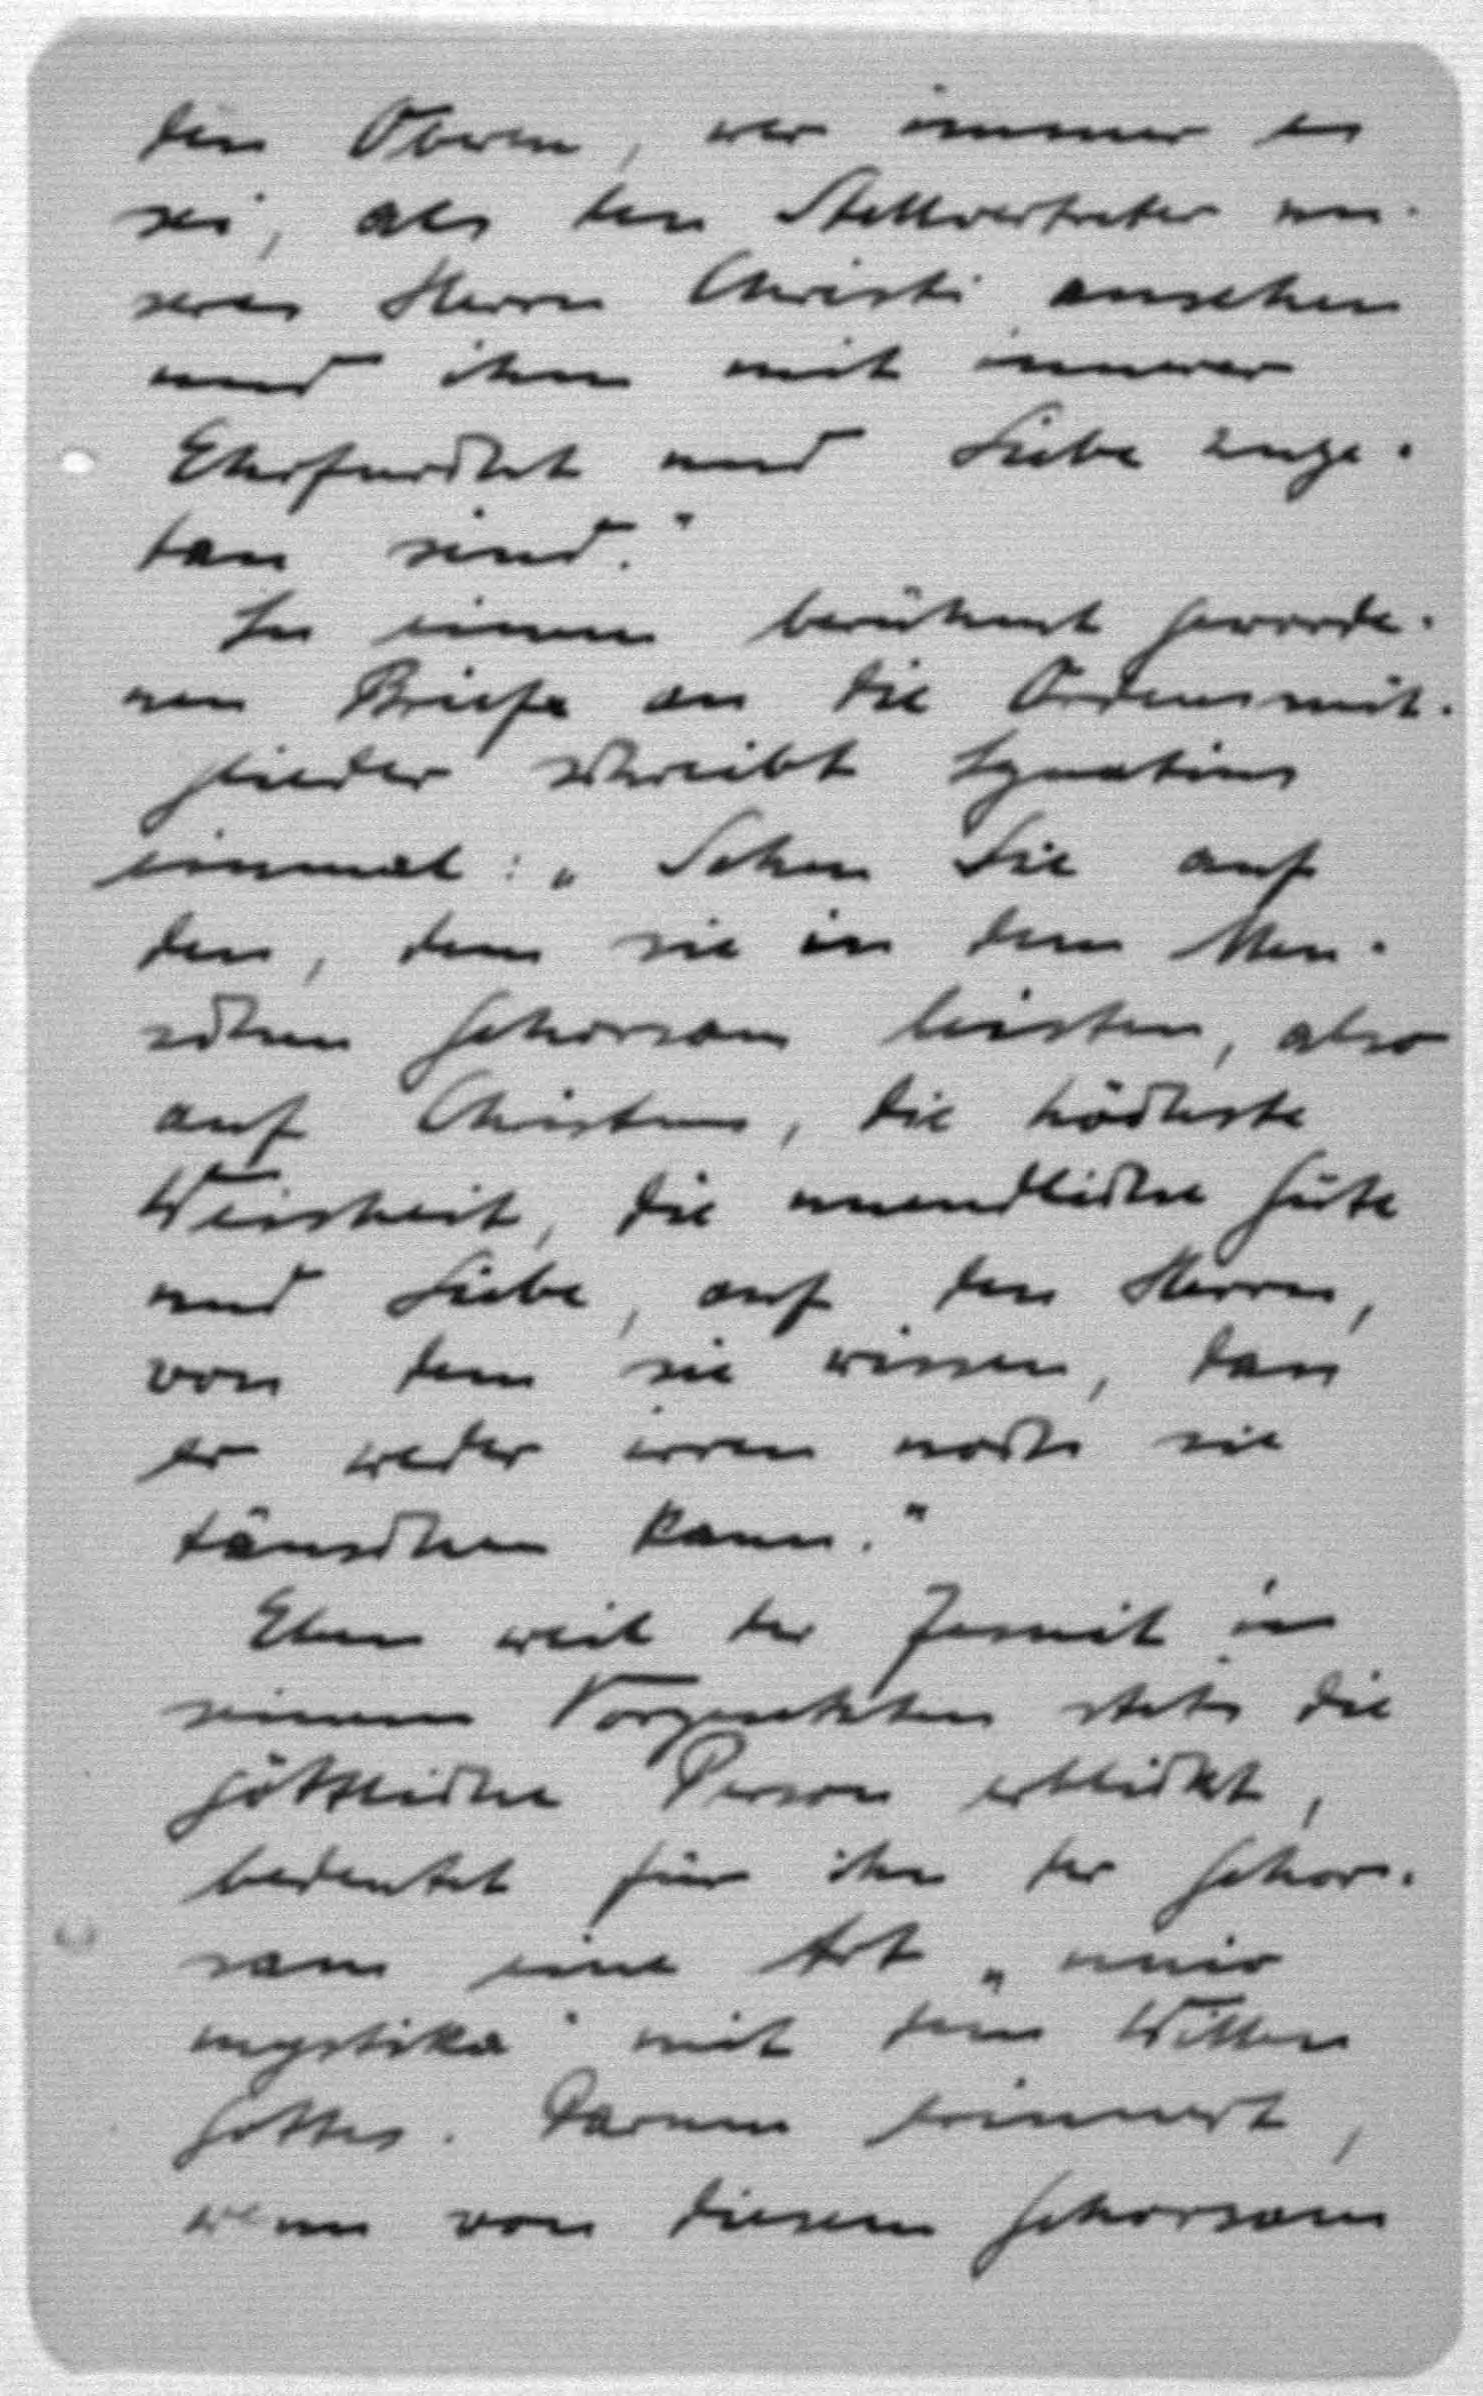 den Obern, wer immer es
sei, als den Stellvertreter un-
seres Herrn Christi ansehen
und ihm mit innerer
Ehrfurcht und Liebe zuge-
tan sind."
In einem berühmt geworde-
nen Briefe an die Ordensmit-
glieder schreibt Ignatius
einmal: „Sehen Sie auf
den, dem sie in dem Men-
schen Gehorsam leisten, also
auf Christus, die höchste
Weisheit, die unendliche Güte
und Liebe, auf den Herrn,
von dem sie wissen, dass
er weder irren noch sie
täuschen kann."
Eben weil der Jesuit in
seinem Vorgesetzten stets die
göttliche Person erblickt,
bedeutet für ihn der Gehor-
sam eine Art „unio
mystika" mit dem Willen
Gottes. Darum erinnert,
wenn von diesem Gehorsam